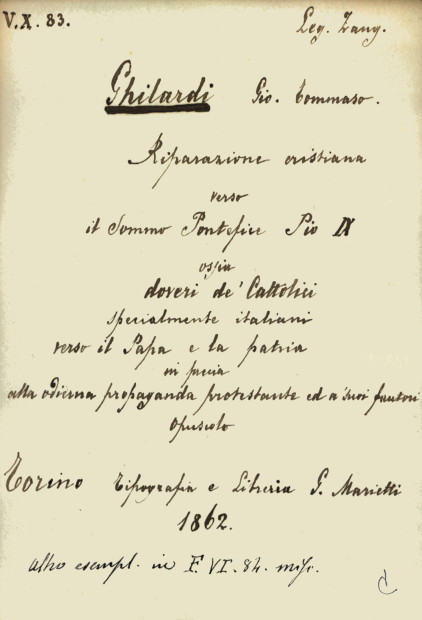 V.X.83.
Leg. Zang.
Ghilardi Gio. Tommaso.
Riparazione cristiana
verso
il Sommo Pontefice Pio IX
ossia
doveri de' Cattolici
specialmente italiani
verso il Papa e la patria
in faccia
alla odierna propaganda protestante ed a' suoi fautori
Opuscolo
Torino Tipografia e Libreria G. Marietti
1862.
altro esempl. in F. VI. 84. misc.